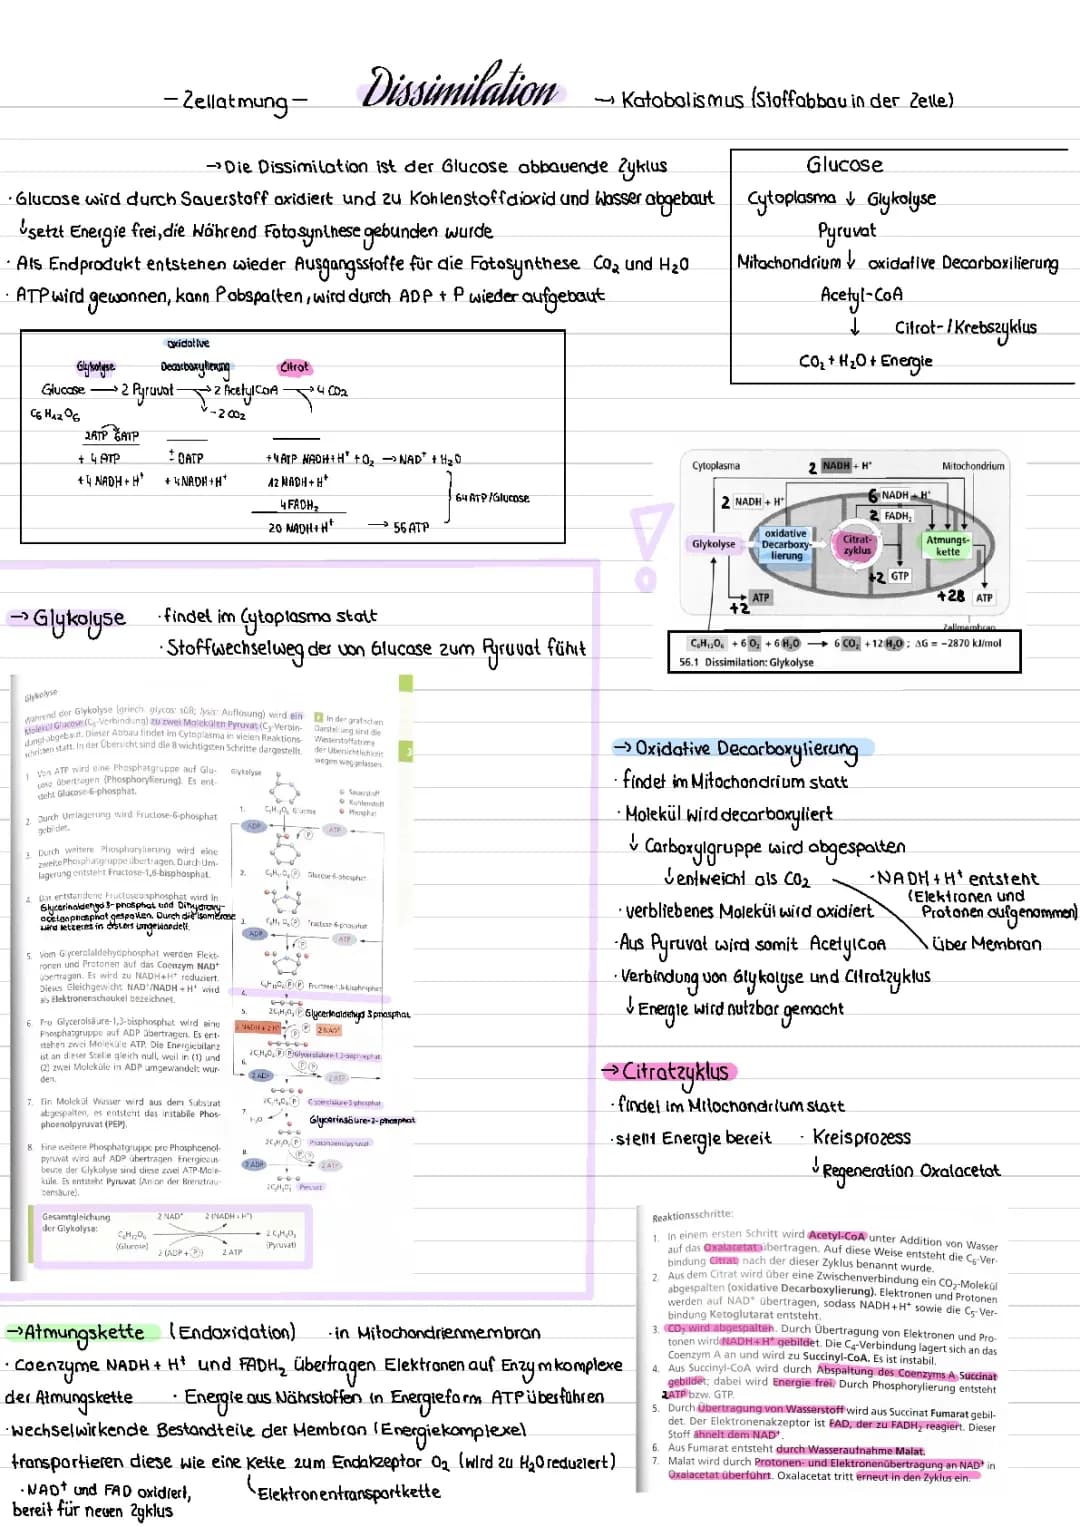 Dissimilation
- Zellatmung -
→ Katabolismus (Stoffabbau in der Zelle)
→ Die Dissimilation ist der Glucose abbauende Zyklus
· Glucose wird durch Sauerstoff oxidiert und zu Kohlenstoffdioxid und Wasser abgebaut
↓ setzt Energie frei, die Während Fotosynthese gebunden wurde
· Als Endprodukt entstehen wieder Ausgangsstoffe für die Fotosynthese CO₂ und H₂O
· ATP wird gewonnen, kann P abspalten, wird durch ADP + P wieder aufgebaut
Glucose
Cytoplasma ↓ Glykolyse
Pyruvat
Mitochondrium ↓ oxidative Decarboxilierung
Acetyl-CoA
↓ Citrat-/Krebszyklus
CO₂ + H₂O + Energie
oxidative
Glykolyse Decarboxylierung Citrat
Glucose → 2 Pyruvat → 2 AcetylCoA → 4 CO₂
C₆H₁₂O₆ -2 CO₂
2ATP 6ATP
+ 4 ATP ± 0ATP +4ATP NADH+H⁺ + O₂ → NAD⁺ + H₂O
+4 NADH+H⁺ +4NADH+H⁺ 12 NADH+H⁺
4FADH₂ 64 ATP/Glucose
20 NADH+H⁺ → 56 ATP
Cytoplasma 2 NADH + H⁺ Mitochondrium
2 NADH + H⁺ 6 NADH + H⁺
2 FADH₂
Glykolyse
oxidative Decarboxy-lierung
Citrat-zyklus
Atmungs-kette
+2 GTP
+2 ATP +28 ATP
Zellmembran
C₆H₁₂O₆ + 6 O₂ + 6 H₂O → 6 CO₂ + 12 H₂O ; ΔG = −2870 kJ/mol
56.1 Dissimilation: Glykolyse
→ Glykolyse · findet im Cytoplasma statt
· Stoffwechselweg der von Glucose zum Pyruvat führt
Glykolyse
Während der Glykolyse (griech. glycos: süß; lysis: Auflösung) wird ein
Molekül Glucose (C₆-Verbindung) zu zwei Molekülen Pyruvat (C₃-Verbin-
dung) abgebaut. Dieser Abbau findet im Cytoplasma in vielen Reaktions-
schritten statt. In der Übersicht sind die 8 wichtigsten Schritte dargestellt.
In der grafischen
Darstellung sind die
Wasserstoffatome
der Übersichtlichkeit
wegen weggelassen.
1. Von ATP wird eine Phosphatgruppe auf Glu-
cose übertragen (Phosphorylierung). Es ent-
steht Glucose-6-phosphat.
2. Durch Umlagerung wird Fructose-6-phosphat
gebildet.
3. Durch weitere Phosphorylierung wird eine
zweite Phosphatgruppe übertragen. Durch Um-
lagerung entsteht Fructose-1,6-bisphosphat.
4. Das entstandene Fructosebisphosphat wird in
Glycerinaldehyd 3-phosphat und Dihydroxy-
acetonphosphat gespalten. Durch die Isomerase
wird letzteres in ersters umgewandelt.
5. Vom Glyceralaldehydphosphat werden Elekt-
ronen und Protonen auf das Coenzym NAD⁺
übertragen. Es wird zu NADH+H⁺ reduziert.
Dieses Gleichgewicht NAD⁺/NADH + H⁺ wird
als Elektronenschaukel bezeichnet.
6. Pro Glycerolsäure-1,3-bisphosphat wird eine
Phosphatgruppe auf ADP übertragen. Es ent-
stehen zwei Moleküle ATP. Die Energiebilanz
ist an dieser Stelle gleich null, weil in (1) und
(2) zwei Moleküle in ADP umgewandelt wur-
den.
7. Ein Molekül Wasser wird aus dem Substrat
abgespalten, es entsteht das instabile Phos-
phoenolpyruvat (PEP).
8. Eine weitere Phosphatgruppe pro Phosphoenol-
pyruvat wird auf ADP übertragen. Energieaus-
beute der Glykolyse sind diese zwei ATP-Mole-
küle. Es entsteht Pyruvat (Anion der Brenztrau-
bensäure).
Glykolyse
Sauerstoff
Kohlenstoff
Phosphat
1. C₆H₁₂O₆ Glucose
ADP ATP
2. Glucose-6-phosphat
3. Fructose-6-phosphat
ADP ATP
4. Fructose-1,6-bisphosphat
5. Glycerinaldehyd 3 phosphat
2 NADH + 2 H⁺ 2 NAD⁺
Glycerolsäure-1,3-bisphosphat
6.
2 ADP 2 ATP
Glycerolsäure-3-phosphat
7.
H₂O Glycerinsäure-2-phosphat
Phosphoenolpyruvat
8.
2 ADP 2 ATP
2C₃H₃O₃ Pyruvat
Gesamtgleichung
der Glykolyse:
2 NAD⁺ 2 (NADH + H⁺)
C₆H₁₂O₆ 2 C₃H₄O₃
(Glucose) (Pyruvat)
2 (ADP + P) 2 ATP
→ Oxidative Decarboxylierung
· findet im Mitochondrium statt
· Molekül wird decarboxyliert
↓ Carboxylgruppe wird abgespalten
↓ entweicht als CO₂
· NADH + H⁺ entsteht
(Elektronen und
Protonen aufgenommen)
· verbliebenes Molekül wird oxidiert
über Membran
· Aus Pyruvat wird somit AcetylCoA
· Verbindung von Glykolyse und Citratzyklus
↓ Energie wird nutzbar gemacht
→ Citratzyklus
· findet im Mitochondrium statt
· stellt Energie bereit · Kreisprozess
↓ Regeneration Oxalacetat
Reaktionsschritte:
1. In einem ersten Schritt wird Acetyl-CoA unter Addition von Wasser
auf das Oxalacetat übertragen. Auf diese Weise entsteht die C₆-Ver-
bindung Citrat, nach der dieser Zyklus benannt wurde.
2. Aus dem Citrat wird über eine Zwischenverbindung ein CO₂-Molekül
abgespalten (oxidative Decarboxylierung). Elektronen und Protonen
werden auf NAD⁺ übertragen, sodass NADH+H⁺ sowie die C₅-Ver-
bindung Ketoglutarat entsteht.
3. CO₂ wird abgespalten. Durch Übertragung von Elektronen und Pro-
tonen wird NADH+H⁺ gebildet. Die C₄-Verbindung lagert sich an das
Coenzym A an und wird zu Succinyl-CoA. Es ist instabil.
4. Aus Succinyl-CoA wird durch Abspaltung des Coenzyms A Succinat
gebildet; dabei wird Energie frei. Durch Phosphorylierung entsteht
2ATP bzw. GTP.
5. Durch Übertragung von Wasserstoff wird aus Succinat Fumarat gebil-
det. Der Elektronenakzeptor ist FAD, der zu FADH₂ reagiert. Dieser
Stoff ähnelt dem NAD⁺.
6. Aus Fumarat entsteht durch Wasseraufnahme Malat.
7. Malat wird durch Protonen- und Elektronenübertragung an NAD⁺ in
Oxalacetat überführt. Oxalacetat tritt erneut in den Zyklus ein.
→ Atmungskette (Endoxidation) · in Mitochondrienmembran
· Coenzyme NADH + H⁺ und FADH₂ übertragen Elektronen auf Enzymkomplexe
der Atmungskette · Energie aus Nährstoffen in Energieform ATP überführen
· wechselwirkende Bestandteile der Membran (Energiekomplexe)
transportieren diese wie eine Kette zum Endakzeptor O₂ (wird zu H₂O reduziert)
· NAD⁺ und FAD oxidiert, Elektronentransportkette
bereit für neuen Zyklus